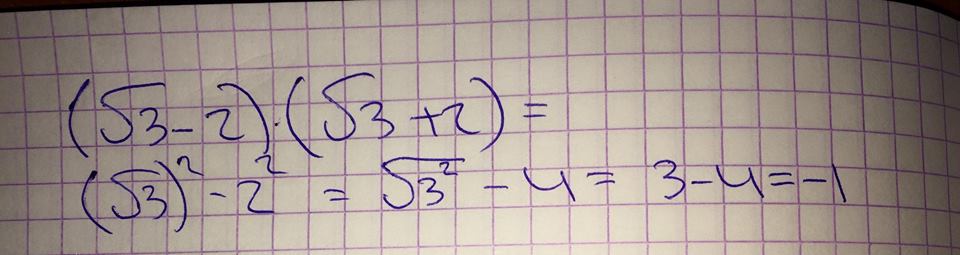 (√3-2)·(√3+2)=
(√3)²-2² = √3² -4= 3-4=-1